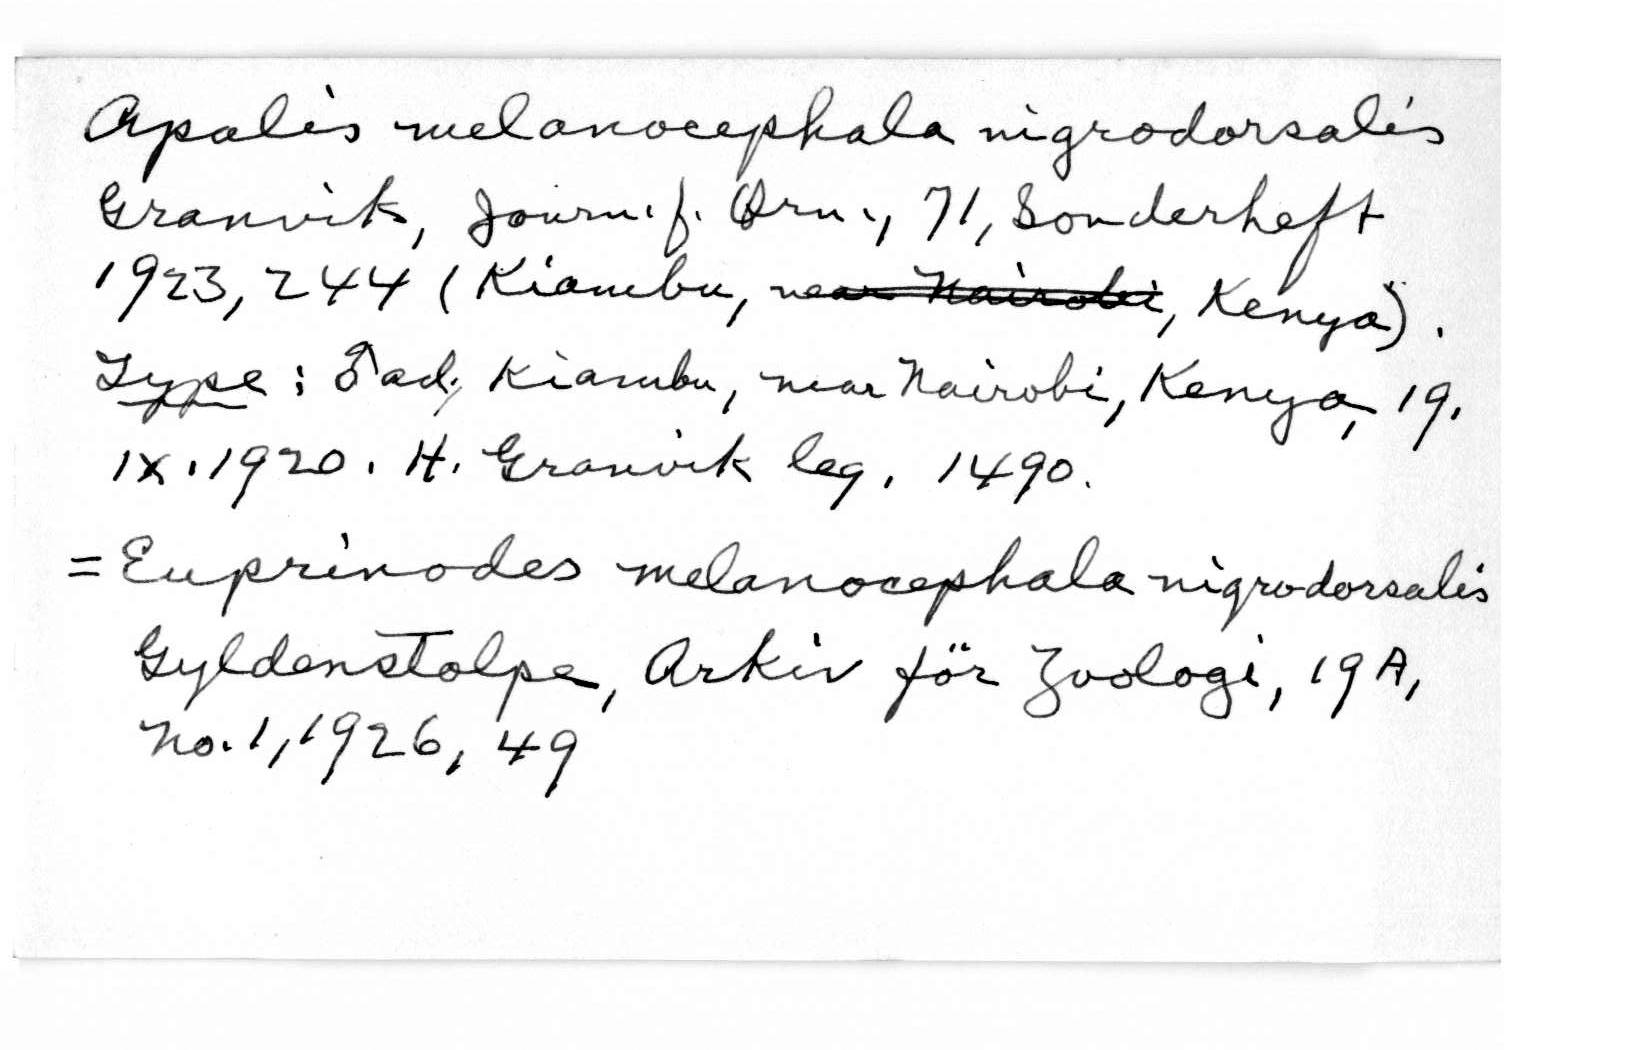 Apalis melanocephala nigrodorsalis
Granvik, Journ. f. Orn., 71, Sonderheft
1923, 244 (Kiambu, near Nairobi, Kenya).
Type: ♂ ad, Kiambu, near Nairobi, Kenya, 19.
IX. 1920. H. Granvik leg. 1490.
= Euprinodes melanocephala nigrodorsalis
Gyldenstolpe, Arkiv för Zoologi, 19A,
No. 1, 1926, 49